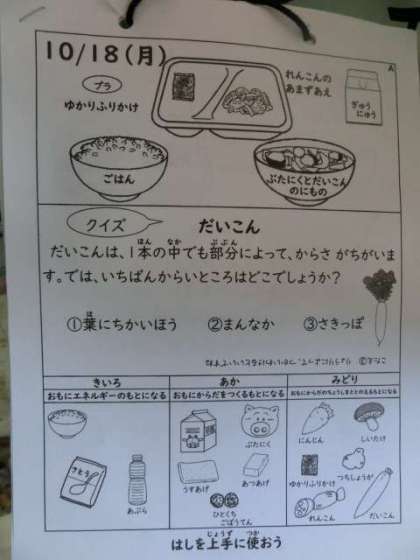 10/18(月)
A
プラ
ゆかりふりかけ
れんこんの
あまずあえ
ぎゅう
にゅう
ごはん
ぶたにくとだいこん
のにもの
クイズ
だいこん
だいこんは、1本の中でも部分によって、からさ がちがいま
ほん なか ぶぶん
す。では、いちばんからいところはどこでしょうか?
①葉にちかいほう ②まんなか ③さきっぽ
は
きいろ
あか
みどり
おもにエネルギーのもとになる
おもにからだをつくるもとになる
おもにからだのちょうしをととのえるもとになる
さとう
あぶら
ぶたにく
うすあげ
あつあげ
ひとくち
ごぼうてん
にんじん
しいたけ
ゆかりふりかけ
つちしょうが
れんこん
だいこん
じょうず つか
はしを上手に使おう